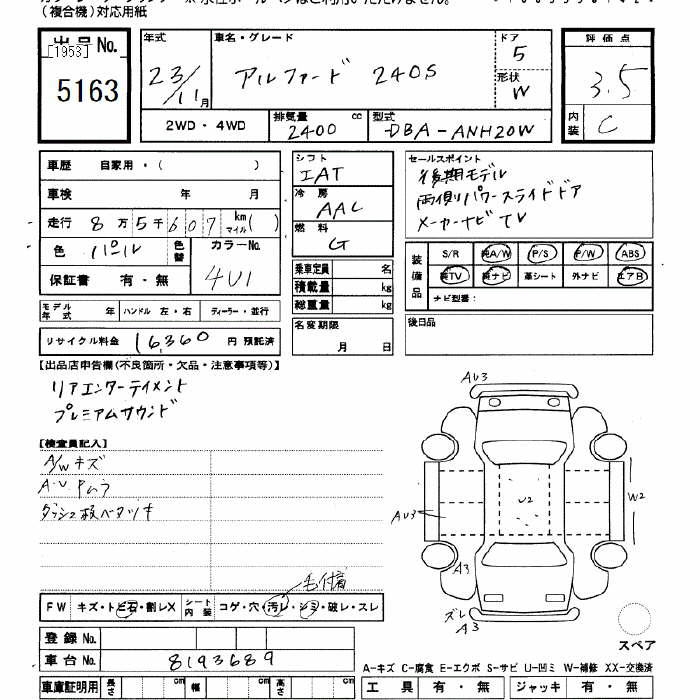 (複合機)対応用紙
出品No.
[1953]
5163
年式
23/11月
車名・グレード
アルファード 240S
ドア
5
形状
W
評価点
3.5
内装
C
2WD・4WD
排気量
2400 cc
型式
DBA-ANH20W
車歴 自家用・( )
車検 年 月
走行 8万5千607 km マイル( )
色 パール 色替
カラーNo.
4U1
保証書 有・無
モデル年式 年 ハンドル 左・右 ディーラー・並行
リサイクル料金 16,360 円 預託済
シフト
IAT
冷房
AAC
燃料
G
乗車定員 名
積載量 kg
総重量 kg
名変期限
月 日
セールスポイント
後期モデル
両側パワースライドドア
メーカーナビTV
装備品
S/R 純A/W P/S P/W ABS
純TV 純ナビ 革シート 外ナビ エアB
ナビ型番:
後日品
【出品店申告欄(不良箇所・欠品・注意事項等)】
リアエンターテイメント
プレミアムサウンド
【検査員記入】
A/Wキズ
A-U Pムラ
ダッシュ板ベタツキ
毛付着
FW キズ・トビ石・割レX シート内装 コゲ・穴・汚レ・シミ・破レ・スレ
登録No.
車台No. 8193689
車庫証明用 長さ cm 幅 cm 高さ cm
AU3
U2
W2
AU3
A3
ズレ
A3
スペア
A-キズ C-腐食 E-エクボ S-サビ U-凹ミ W-補修 XX-交換済
工具 有・無 ジャッキ 有・無